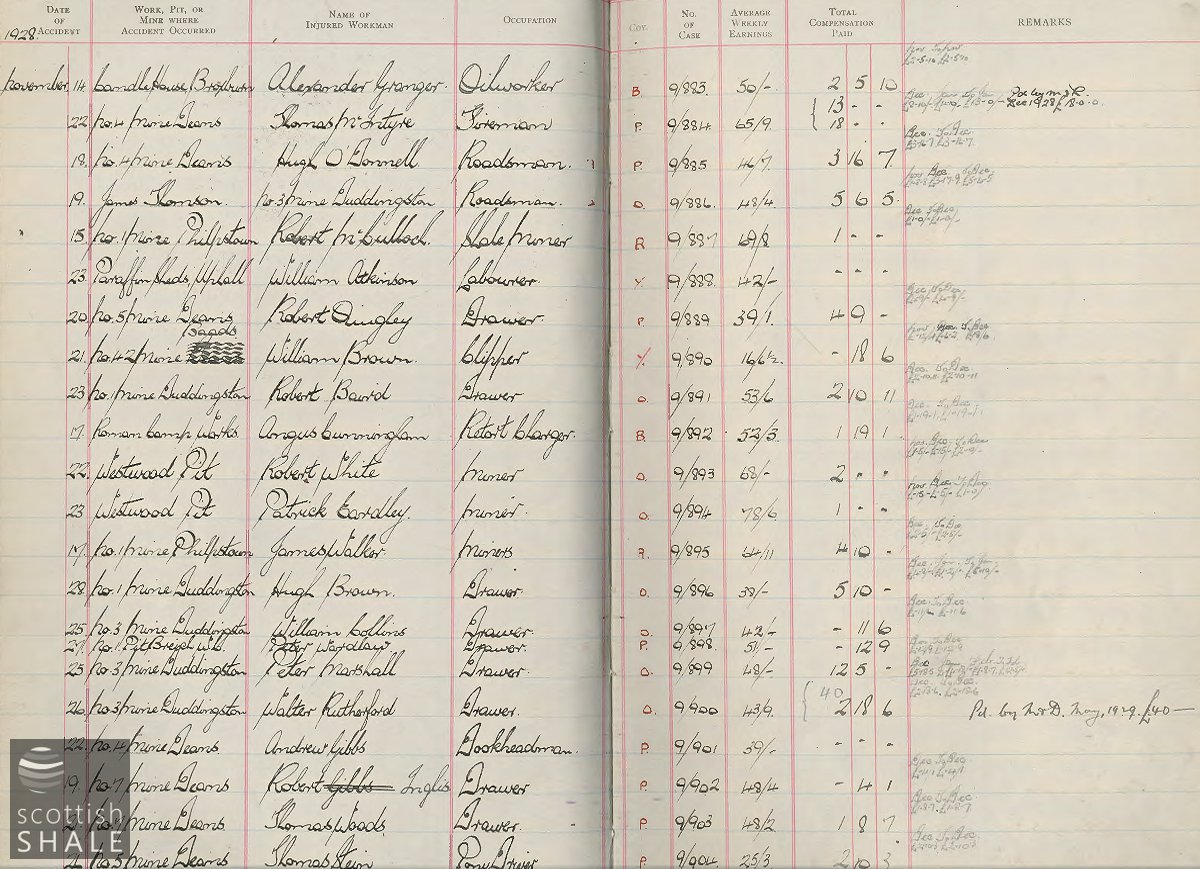 DATE OF ACCIDENT WORK, PIT, OR MINE WHERE ACCIDENT OCCURRED NAME OF INJURED WORKMAN OCCUPATION COY. NO. OF CASE AVERAGE WEEKLY EARNINGS TOTAL COMPENSATION PAID REMARKS
1928.
November 14 Candle House Broxburn Alexander Granger. Oilworker B. 9/883. 50/- 2 5 10
13 - - Pd. by M & R.
22 No. 4 Mine Deans Thomas McIntyre Fireman P. 9/884 65/9. 18 - - Dec 1928 £18.0.0.
18. No. 4 Mine Deans Hugh O'Donnell Roadsman. P. 9/885 46/7 3 16 7
19. James Thomson. No 3 Mine Duddingston Roadsman. D. 9/886. 48/4. 5 6 5
15. No. 1 Mine Philpstoun Robert McCulloch. Shale Miner R 9/887 49/8 1 - -
23. Paraffin Sheds, Uphall William Atkinson Labourer. Y 9/888. 42/- - - -
20 No. 5 Mine Deans Robert Quigley Drawer P 9/889 39/1. 4 9 -
Baads
21. No. 42 Mine William Brown. Clipper Y. 9/890 16/6½ - 18 6
23 No. 1 Mine Duddingston Robert Baird Drawer D. 9/891 53/6 2 10 11
17. Roman Camp Works. Angus Cunningham Retort Charger. B. 9/892 52/3. 1 19 1
22. Westwood Pit Robert White Miner D. 9/893 68/- 2 - -
23 Westwood Pit Patrick Eardley. Miner. D. 9/894 78/6 1 - -
17. No. 1 Mine Philpstoun James Walker. Miners R. 9/895 44/11 4 10 -
28. No. 1 Mine Duddingston Hugh Brown. Drawer. D. 9/896 38/- 5 10 -
25 No. 3 Mine Duddingston William Collins Drawer. D. 9/897 42/- - 11 6
27. No. 1 Pit Breich W.B. Peter Wardlaw Drawer. P. 9/898. 51/- - 12 9
25 No. 3 Mine Duddingston Peter Marshall Drawer. D. 9/899 48/- 12 5 -
40
26 No. 3 Mine Duddingston Walter Rutherford Drawer. D. 9/900 43/9. 2 18 6 Pd. by M & D. May, 1929. £40 —
22. No. 4 Mine Deans. Andrew Gibbs Bookheadman. P. 9/901 39/- - - -
19. No. 7 Mine Deans Robert Gibbs Inglis Drawer P 9/902 48/4 - 4 1
Mine Deans. Thomas Woods Drawer. P. 9/903 48/2 1 8 7
No. 5 Mine Deans Thomas Stein Pony Driver P. 9/904 25/3 2 10 3
Scottish
SHALE